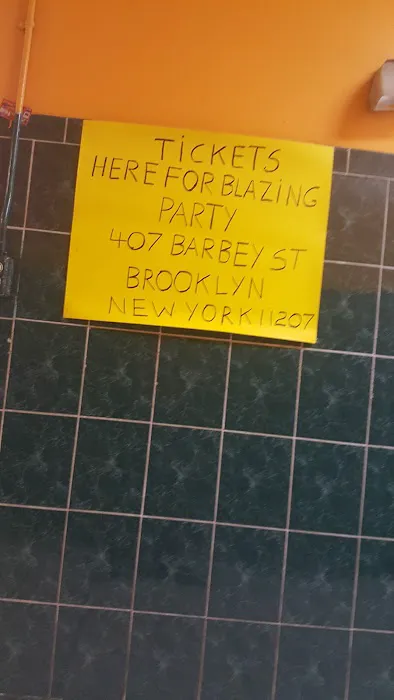 TICKETS
HERE FOR BLAZING
PARTY
407 BARBEY ST
BROOKLYN
NEW YORK 11207